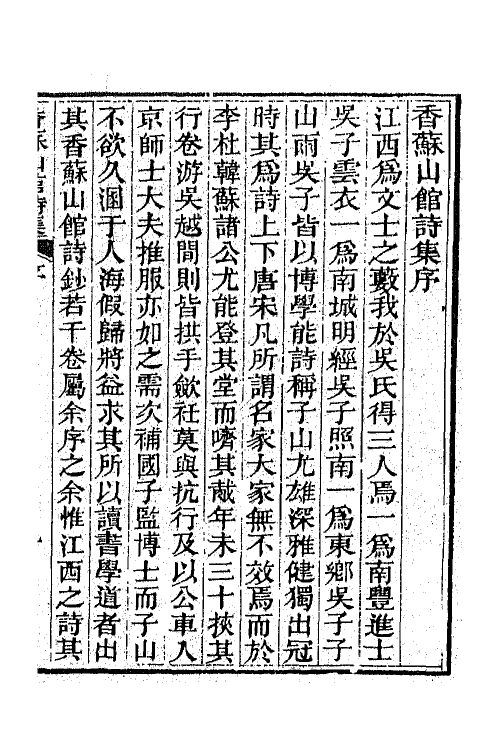 香蘇山館詩集序
江西爲文士之藪我於吳氏得三人焉一爲南豐進士
吳子雲衣一爲南城明經吳子照南一爲東鄉吳子子
山雨吳子皆以博學能詩稱子山尤雄深雅健獨出冠
時其爲詩上下唐宋凡所謂名家大家無不效焉而於
李杜韓蘇諸公尤能登其堂而嚌其胾年未三十挾其
行卷游吳越間則皆拱手歛衽莫與抗行及以公車入
京師士大夫推服亦如之需次補國子監博士而子山
不欲久溷于人海假歸將益求其所以讀書學道者出
其香蘇山館詩鈔若干卷屬余序之余惟江西之詩其
香蘇山館詩集
序